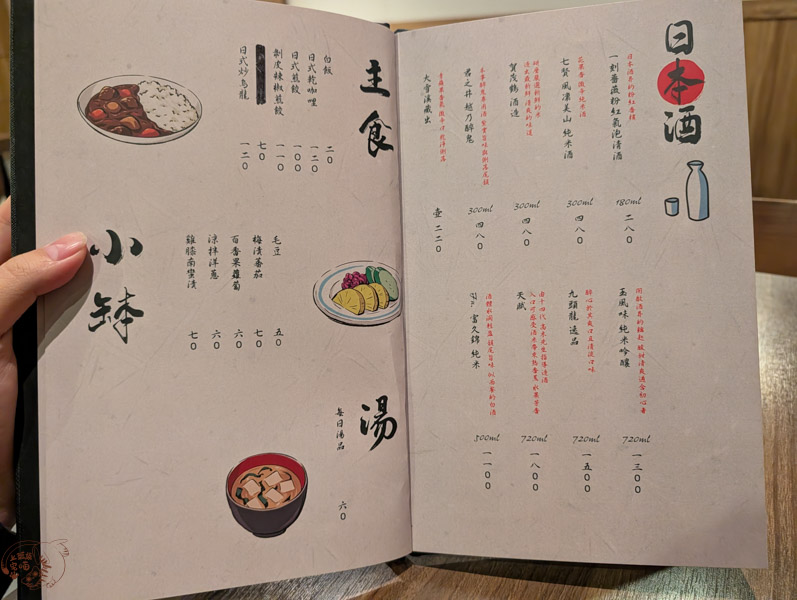 日本酒
日本酒界的粉紅香檳
一刻薔薇粉紅氣泡清酒
180ml
二八〇
花果香 微辛 純米酒
七賢 風凛美山 純米酒
300ml
四八〇
賀茂鶴 酒造
300ml
四八〇
君之井 越乃醉鬼
300ml
四八〇
大會溪藏出
壺 二二〇
玉風味 純米吟釀
720ml
一三〇〇
九頭龍 逸品
720ml
一五〇〇
天賦
720ml
一八〇〇
富久錦 純米
500ml
一一〇〇
主食
白飯
二〇
日式乾咖哩
一二〇
日式煎餃
一〇〇
剝皮辣椒煎餃
一一〇
七〇
日式炒烏龍
一二〇
小缽
毛豆
五〇
梅漬蕃茄
七〇
百香果蘿蔔
六〇
涼拌洋蔥
六〇
雞膝南蠻漬
七〇
湯
每日湯品
六〇